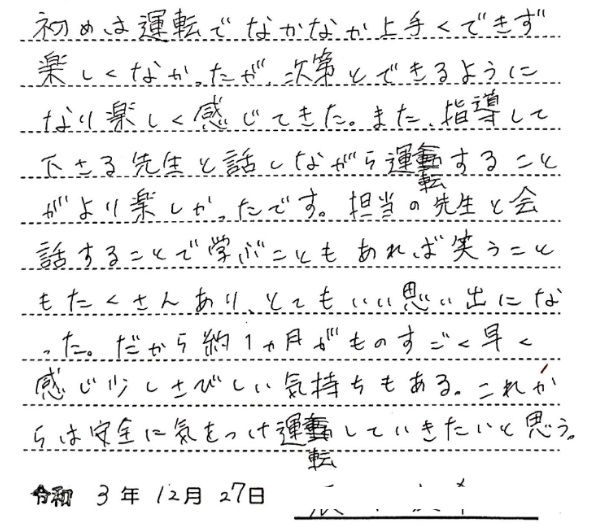 初めは運転でなかなか上手くできず
楽しくなかったが、次第とできるように
なり楽しく感じてきた。また、指導して
下さる先生と話しながら運転すること
がより楽しかったです。担当の先生と会
話することで学ぶこともあれば笑うこと
もたくさんあり、とてもいい思い出にな
った。だから約1ヵ月がものすごく早く
感じ少しさびしい気持ちもある。これか
らは安全に気をつけ運転していきたいと思う。
令和 3年 12月 27日